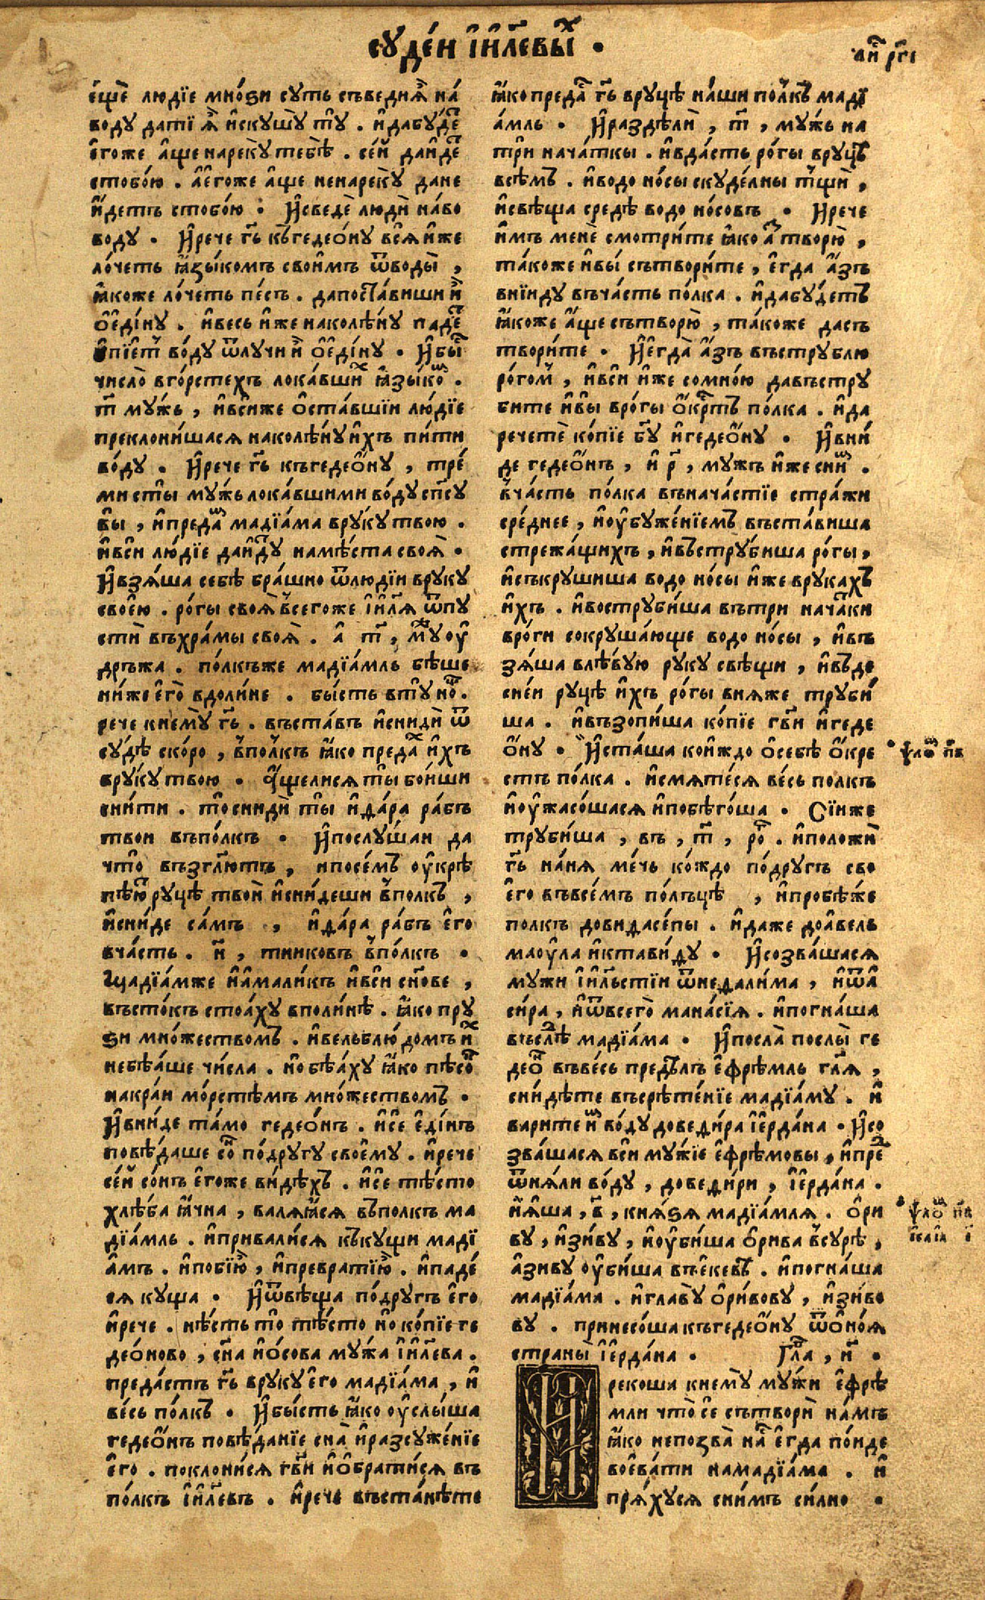 сꙋде́й і҆и҃левы̑х .
ли̑ рг҃і
є҆щѐ лю́дїе мно́ѕи сꙋть съведи̑ѧ на́
водꙋ дати̑ ѧ҆̀ и҆скꙋшꙋ̀ тꙋ̀ . и҆дабꙋ́де
є҆го́же а҆́ще нарекꙋ̀ тебѣ̀ . се́й да и҆́де
стобо́ю . а҆є҆го́же а҆́ще ненарекꙋ̀ дане
и҆́детъ стобо́ю . И҆сведѐ лю́ди на́во
водꙋ . И҆рече гь҃ къгедео́нꙋ всѧ̀ и҆́же
ло́четь ꙗ҆зы́комъ свои́мъ ѿводы̀ ,
ꙗ҆́коже ло́четь пе́съ . дапоста́виши и҆̀
ѻ҆є҆ди́нꙋ . и҆весь и҆́же наколѣ́нꙋ паде́
и҆пїе́т во́дꙋ ѿлꙋчи и҆̀ ѻ҆є҆ди́нꙋ . И҆бы́
число̀ вго́рстехъ лока́вши́х ꙗ҆зы́ко .
т҃ мꙋ́жь , и҆вси́же ѻ҆ста́вшїи лю́дїе
преклони́шасѧ наколѣ́нꙋ и҆́хъ пи́ти
во́дꙋ . И҆рече гь҃ къгедео́нꙋ , тре́
ми сты̀ мꙋ́жь лока́вшими во́дꙋ сп҃сꙋ
вы̀ , и҆преда́м мадїа́ма врꙋ́кꙋ твою̀ .
и҆вси лю́дїе даи҆́дꙋ намѣ́ста своѧ̀ .
И҆взѧ́ша себѣ̀ бра́шно ѿлюді́й врꙋ́кꙋ
свое́ю . ро́гы своѧ̀ всегоже і҆и҃лѧ ѿпꙋ
стѝ въхра́мы своѧ̀ . а҆ т҃ , мꙋ оу҆
дръжа . по́лкъже мадїа́мль бѣ́ше
ни́же є҆го̀ вдоли́не . бы́сть втꙋ̀ но́ .
рече кнемꙋ̀ гь҃ . въста́въ и҆снидѝ ѿ
сꙋдѣ̀ ско́ро , в̾по́лкъ ꙗ҆́ко преда́х и҆́хъ
врꙋ́кꙋ твою̀ . А҆щелисѧ ты̀ бои́ши
сни́ти . то сниди̑ ты̀ и҆да́ра ра́бъ
твои въпо́лкъ . И҆послꙋ́шаи да
что̀ възг҃лютъ , и҆посе́мъ оу҆крѣ
пѣ́ю рꙋцѣ̀ твоѝ и҆сни́деши в̾по́лкъ ,
и҆сни́де са́мъ , и҆да́ра ра́бъ є҆го̀
вча́сть . н҃ , тниковъ в̾по́лкъ .
Мадїа́мже и҆а҆мали́къ и҆вси сн҃ове ,
въсто́къ стоѧ́хꙋ вполи́нѣ . ꙗ҆́ко прꙋ
ѕи мно́жеством . и҆вельблю́домъ и҆́х
небѣ́аше числа̀ . но бѣа́хꙋ ꙗ҆́ко пѣсо́
накра́и мо́рстѣмъ мно́жеством .
И҆вни́де та́мо гедео́нъ . и҆сѐ є҆ди́нъ
повѣ́даше со́ по́дрꙋгꙋ своемꙋ̀ . и҆рече
се́й со́нъ є҆го́же ви́дѣхъ . и҆сѐ тѣ́сто
хлѣ́ба ꙗ҆́чна , валѧ́ꙗсѧ въполкъ ма
дїа́мль . и҆привали́сѧ къкꙋщи мадї
а҆мъ . и҆поби́ю , и҆преврати́ю . и҆паде́
сѧ кꙋща . И҆ѿвѣща̀ по́дрꙋгъ є҆го̀
и҆рече . нѣ́сть то̀ тѣ́сто но ко́пїе ге
део́ново , сн҃а и҆о́сова мꙋ́жа і҆и҃лева .
предасть гь҃ врꙋ́кꙋ є҆го̀ мадїа́ма , и҆
ве́сь по́лкъ . И҆бы́сть ꙗ҆́ко оу҆слы́ша
гедео́нъ повѣ́данїе сна̀ и҆разсꙋжє́нїе
є҆го̀ . поклони́сѧ гв҃и и҆ѻ҆брати́сѧ въ
по́лкъ і҆и҃левъ . и҆рече въста́нѣте
ꙗ҆́ко преда́ гь҃ врꙋцѣ̀ на́ши по́лкъ мадї
а҆мль . И҆раздѣлѝ , т҃ , мꙋ́жь на
трѝ нача́ткы . и҆вда́сть ро́гы врꙋцѣ̀
всѣ́мъ . и҆водо но́сы скꙋде́лны тщѝ ,
и҆свѣща̀ средѣ̀ водо но́совъ . И҆рече
и҆́мъ менѐ смотри́те ꙗ҆́ко а҆́ творю̀ ,
та́коже и҆вы̀ сътвори́те , є҆гда̀ а҆́зъ
вни́идꙋ въча́сть по́лка . и҆дабꙋ́детъ
ꙗ҆́коже а҆́ще сътворю̀ , та́коже дасъ
твори́те . И҆є҆гда̀ а҆́зъ въстрꙋблю̀
ро́гом , и҆всѝ и҆́же сомно́ю давъстрꙋ
бите и҆вы̀ вро́гы ѻ҆́крть по́лка . и҆да
речетѐ ко́пїе бг҃ꙋ и҆гедео́нꙋ . И҆вни́
де гедео́нъ , и҆ р҃ , мꙋ́жъ и҆́же сни́м .
в̾ча́сть по́лка въначастїе стра́жи
сре́днее , и҆оу҆бꙋже́нїемъ въста́виша
стрежа́щихъ , и҆въстрꙋби́ша ро́гы ,
и҆съкрꙋши́ша водо но́сы и҆́же врꙋка́хъ
и҆́хъ . и҆вострꙋби́ша вътри нача́ки
вро́ги сокрꙋша́юще водо но́сы , и҆въ
зѧ́ша влѣ́вꙋю рꙋ́кꙋ свѣ́щи , и҆въде
сне́и рꙋцѣ̀ и҆́хъ ро́гы вни̑же трꙋби́
ша . и҆възопи́ша ко́пїе гв҃и и҆геде
о́нꙋ . И҆ста́ша ко́иждо ѻ҆себѣ̀ ѻ҆́кре
стъ по́лка . и҆смѧте́сѧ ве́сь по́лкъ
и҆оу҆жасо́шасѧ и҆побѣго́ша . Сїиже
трꙋби́ша , въ , т҃ , ро́ . и҆положѝ
гь҃ на́нѧ ме́чь ко́ждо по́дрꙋгъ сво
є҆го̀ въвсе́мъ по́лъцѣ , и҆пробѣ́же
полкъ довидасе́пы . и҆да́же доа҆́вель
маоу҆́ла и҆ктави́дꙋ . И҆созва́шасѧ
мꙋ́жи і҆и҃льстїи ѿнедали́ма , и҆ѿа
си́ра , и҆ѿвсего̀ мана́сїѧ . и҆погна́ша
въслѣ̀ мадїа́ма . И҆посла̀ послы̀ ге
део́ въве́сь пред́ѣлъ є҆фре́мль гл҃ѧ ,
сни́дѣте въсрѣ́тенїе мадїа́мꙋ . и҆
варите и҆́м во́дꙋ доведи́ра і҆є҆рда́на . И҆со
зва́шасѧ вси мꙋ́жїе є҆фре́мовы , и҆пре
ѿѧ́ли во́дꙋ , довєди́ри , і҆є҆рда́на .
и҆ѧ́ша , в҃ , кнѧ́ѕѧ мадїа́млѧ . ѻ҆ри
вꙋ , и҆зи́вꙋ , и҆оу҆би́ша ѻ҆ри́ва в̾сꙋ́рѣ ,
а҆зи́вꙋ оу҆би́ша въє҆кевъ . и҆погна́ша
мадїа́ма . и҆главꙋ̀ ѻ҆ри́вовꙋ , и҆зи́во
вꙋ . принесо́ша къгедео́нꙋ ѿѻ҆ноѧ̀
страны̀ і҆є҆рда́на . Гла̀ , и҃ .
И҆рекоша кнемꙋ̀ мꙋ́жи є҆фрѣ
мли что̀ сѐ сътворѝ на́мъ
ꙗ҆́ко непозва̀ на́ є҆гда̀ пои́де
воева́ти намадїа́ма . и҆
прѧ́хꙋсѧ сни́мъ си́лно .
ѱло́м п҃в
ѱло́м п҃в
і҆са́їа і҃